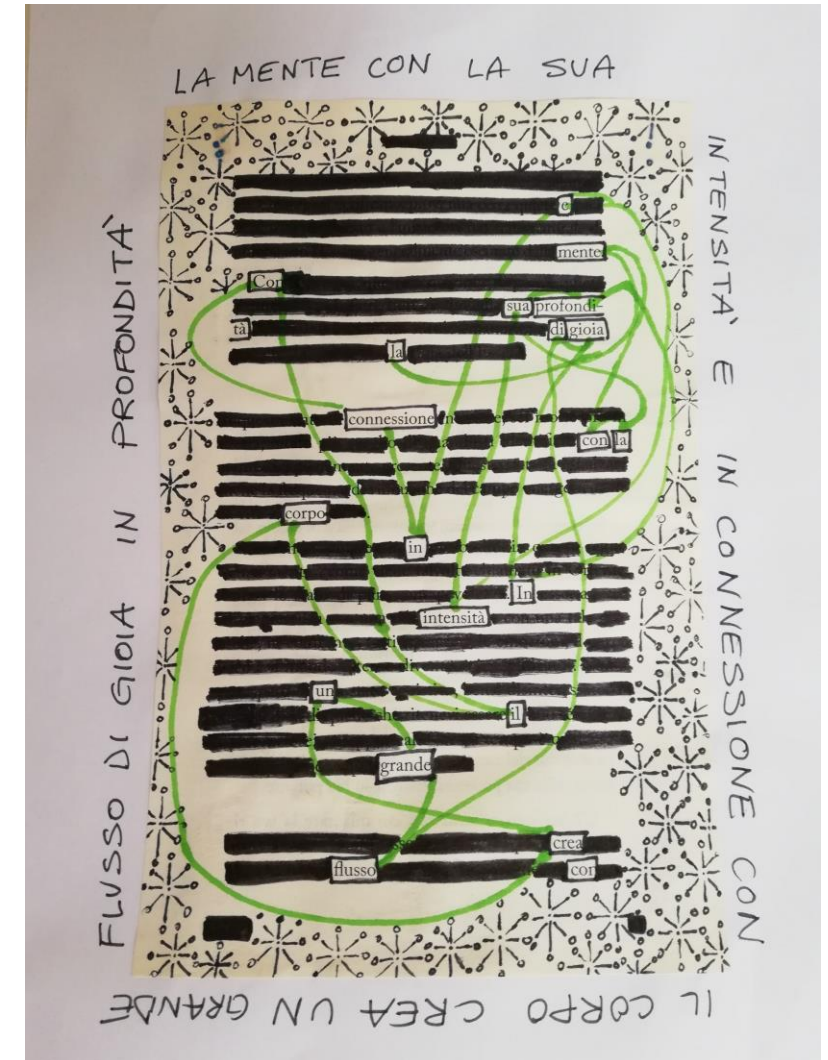 LA MENTE CON LA SUA
INTENSITÀ E IN CONNESSIONE CON
IL CORPO CREA UN GRANDE
FLUSSO DI GIOIA IN PROFONDITÀ
e
mente
Con
sua profondi-
tà di gioia
la
connessione
con la
corpo
in
In
intensità
un
il
grande
crea
flusso con